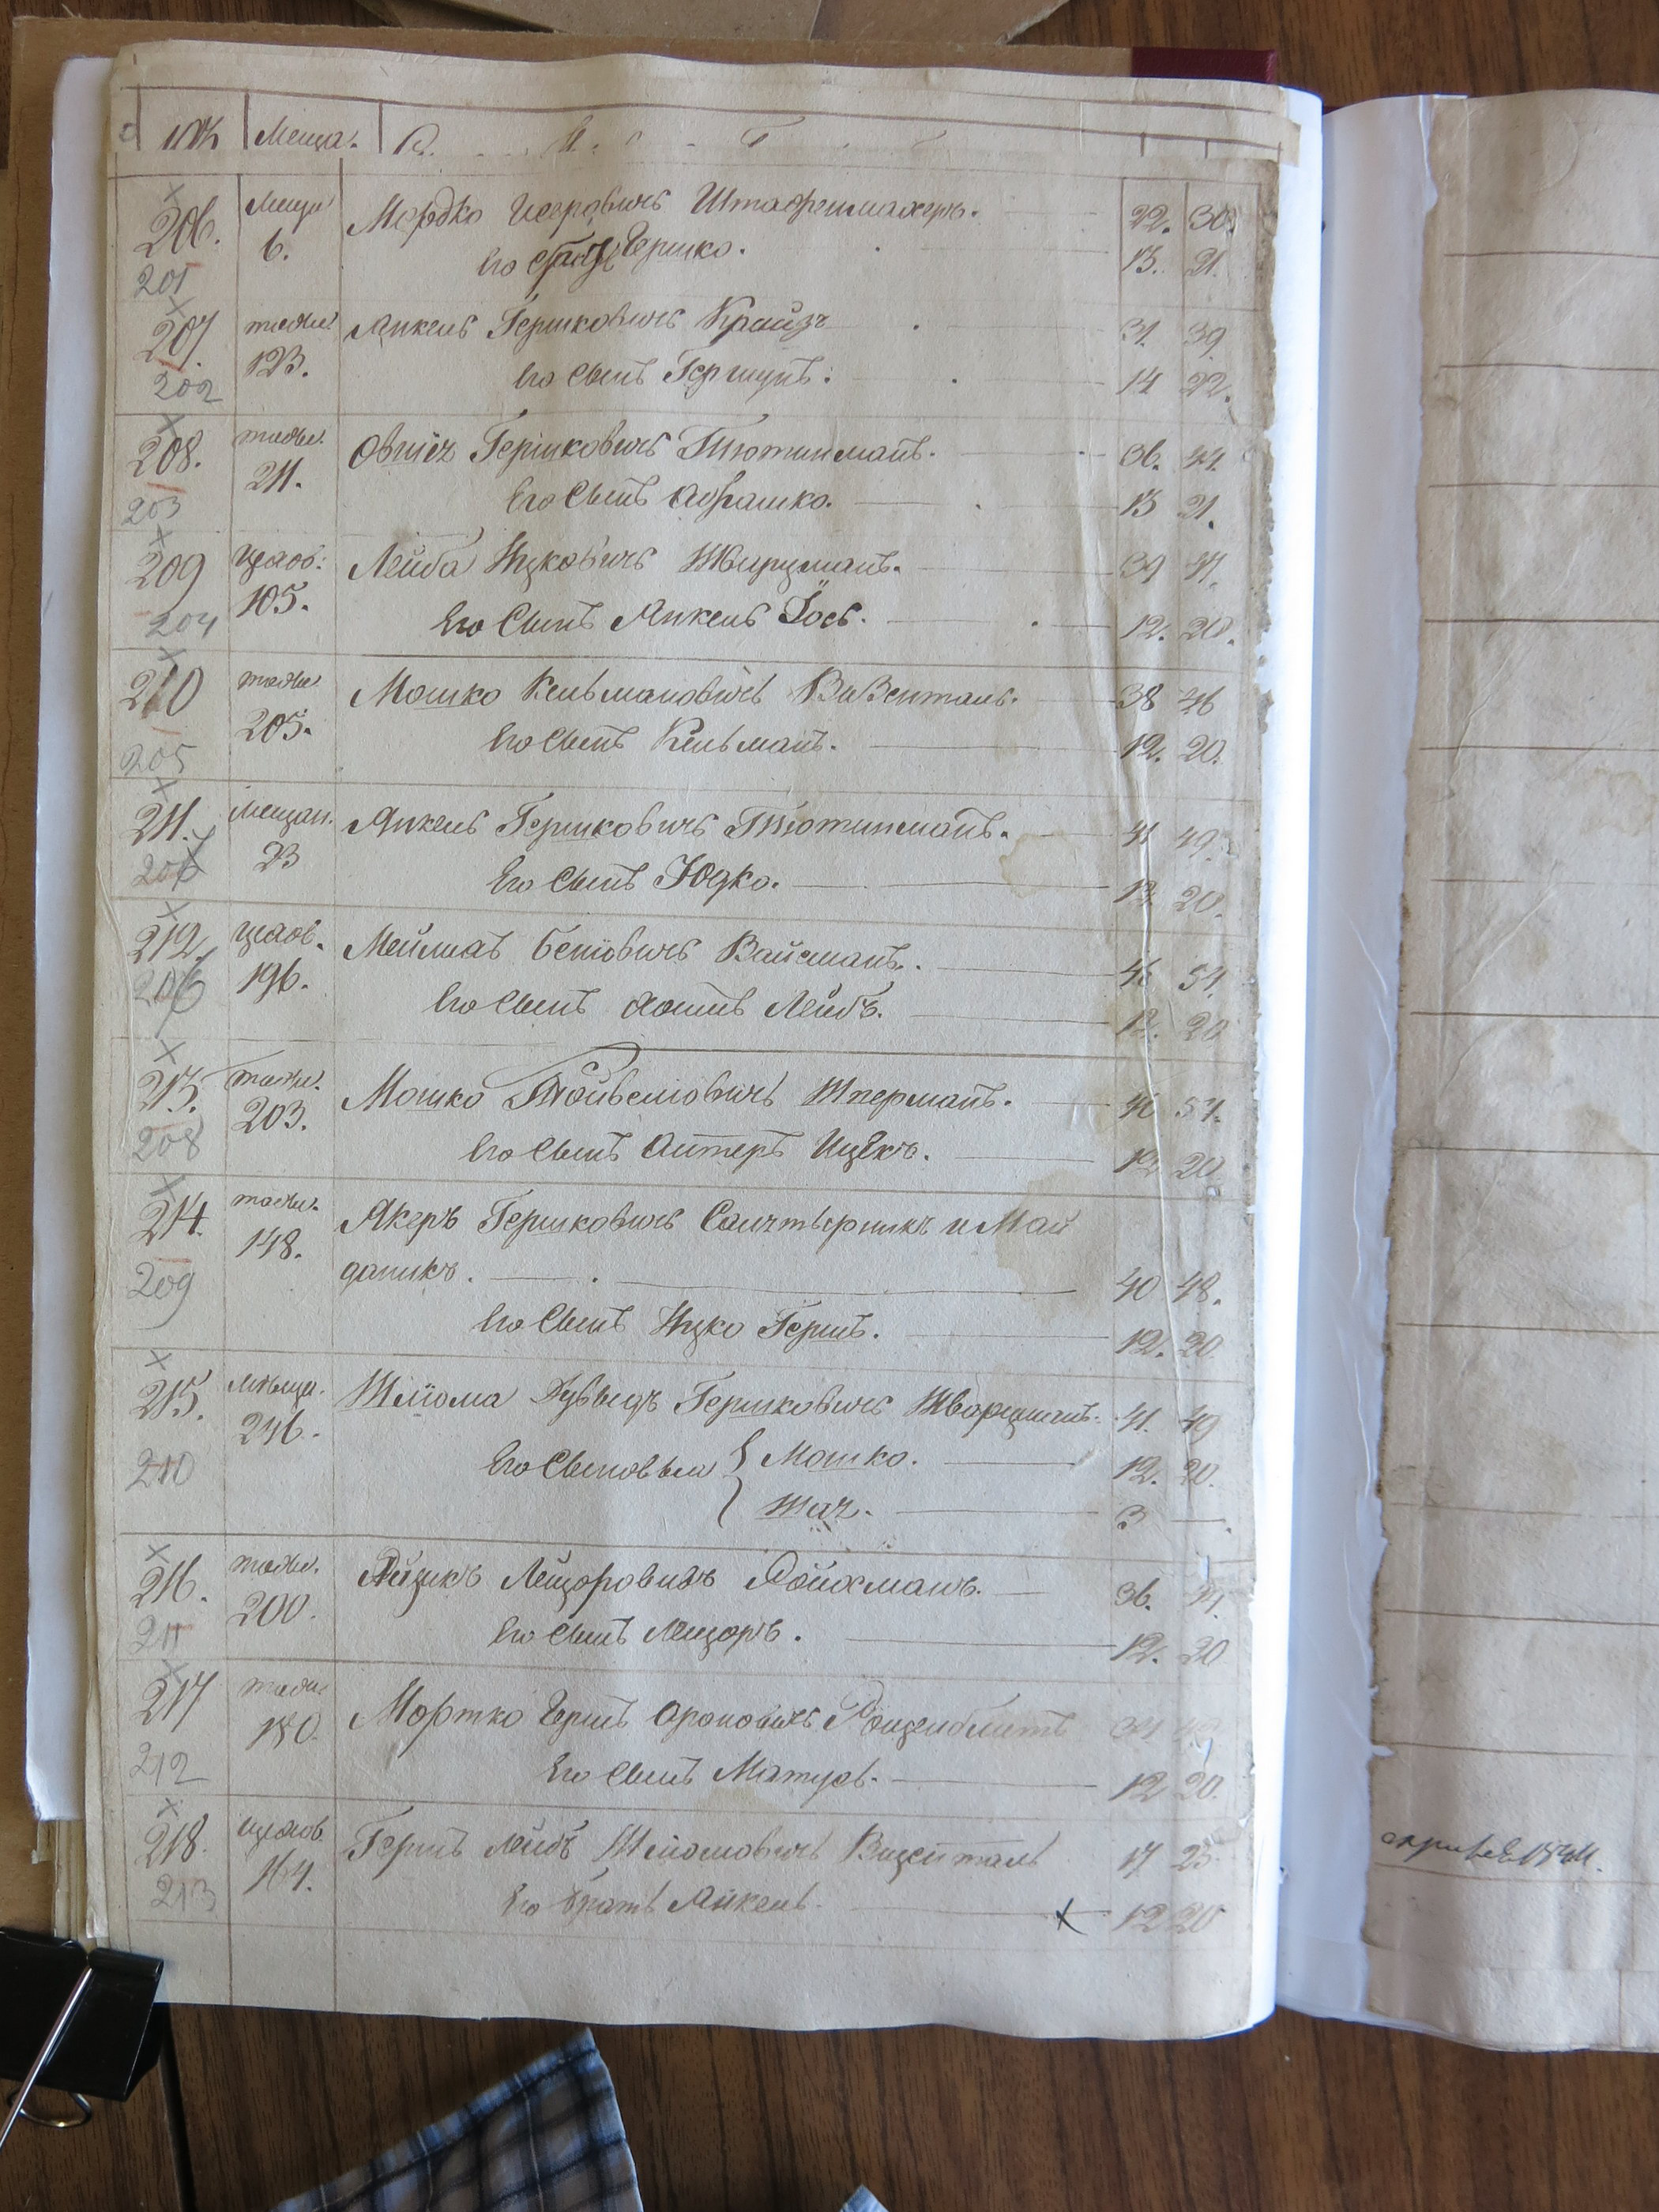 Меща.
206. Меща 6. Мордко Исеровичъ Штафенмахеръ. 22. 30.
Его Братъ Гершко. 13. 21.
201
207. тоже 123. Янкель Гершковичъ Крайзъ 31. 39.
202 Его Сынъ Гершунъ. 14 22.
208. тоже. 211. Овшіеъ Гершковичъ Тютинманъ. 36. 44.
203 Его Сынъ Абрашко. 13 21.
209 цехов: 105. Лейба Ицковичъ Шварцманъ. 39 47.
204 Его Сынъ Янкель Іось. 12. 20.
210 тоже 205. Мошко Кельмановичъ Визенталь. 38 46
205 Его Сынъ Кельманъ. 12. 20.
211. Мещан. 23 Янкель Гершковичъ Тютинманъ. 41 49.
Его Сынъ Юдко. 12 20.
212. цехов. 196. Бенiовичъ Вайсманъ. 46 54.
206 Его Сынъ Лейбъ. 12. 20
213. тоже. 203. Мошко Шперманъ. 46 54.
208 Его Сынъ Антеръ Ицекъ. 12 20
214. тоже. 148. Якеръ Гершковичъ и Май
даникъ. 40 48.
209
Его Сынъ Ицко Гершъ. 12. 20.
215. 246. Шліома Дувыдъ Гершковичъ Шварцманъ. 41. 49
210 Его Сыновья Мошко. 12. 20.
3 —.
216. тоже. 200. Айзикъ Лейзоровичъ Ройхманъ. 36. 44.
211 Его Сынъ Лейзоръ. 12. 20
217 тоже 180. Мортко Гершъ Ароновичъ Розенблитъ
212 Его Сынъ Матусъ. 12 20.
218. цехов. 164. Гершъ Лейбъ Шліомовичъ Визенталь 17 25
213 Его Братъ Янкель. 12 20